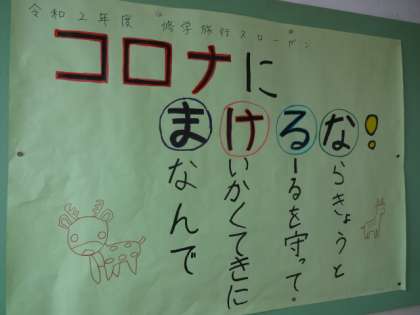 令和2年度 修学旅行スローガン
コロナに
まけるな!
ならきょうと
るーるを守って
けいかくてきに
まなんで